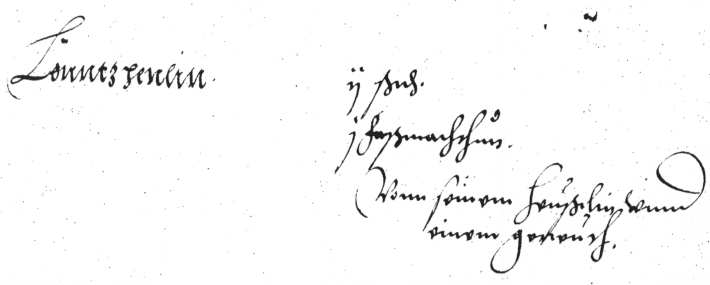 Conntz henlin.
ij ßch.
j faßnachthun.
Vonn seinem heußlin vnnd
einem gereuth.